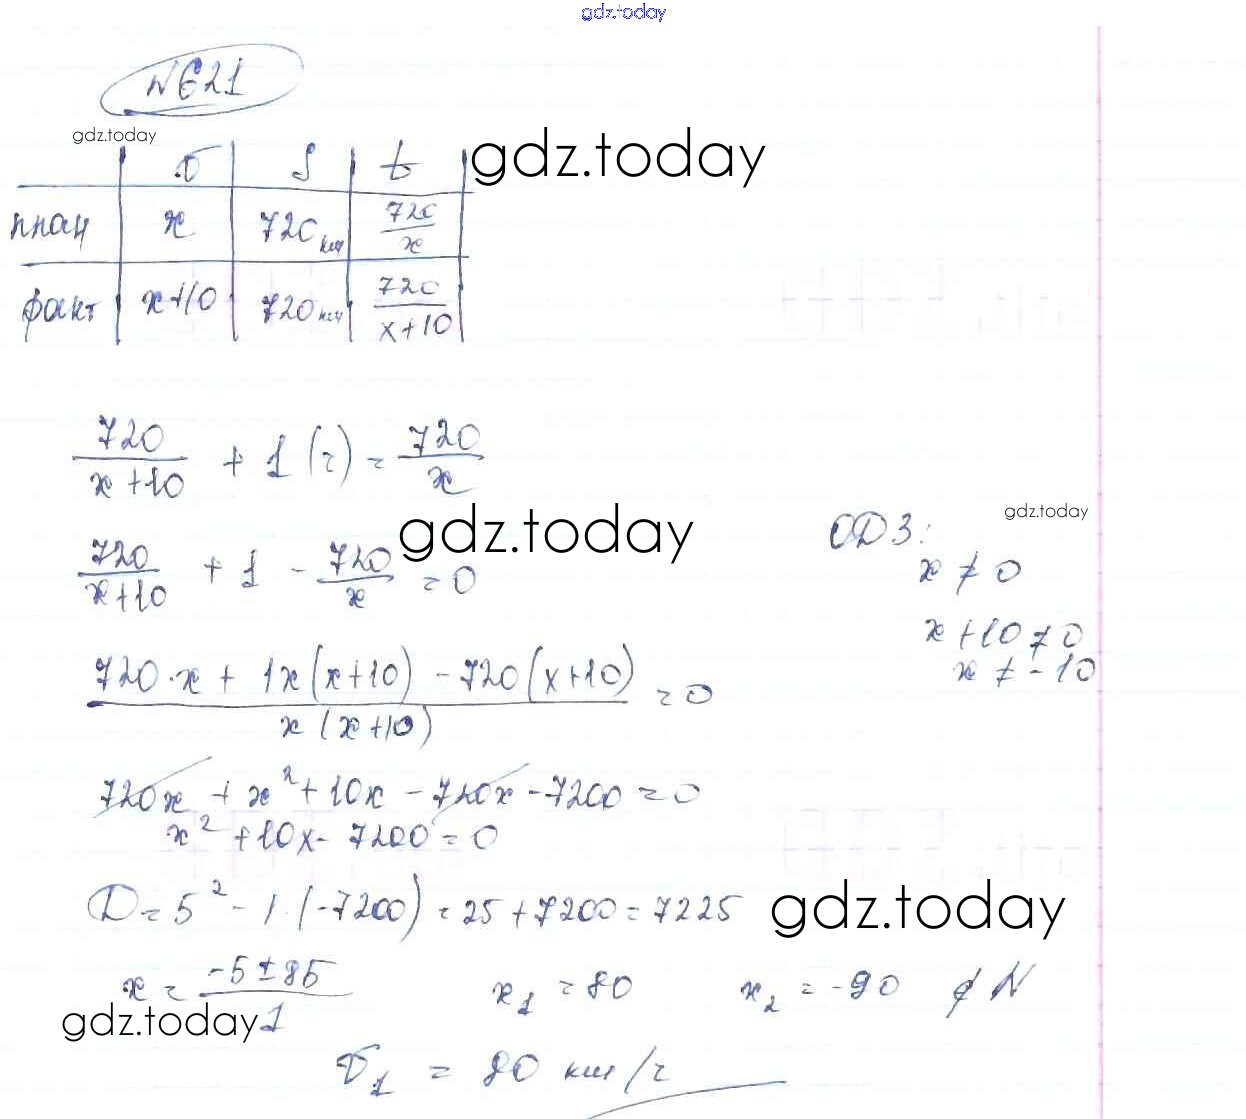 gdz.today
№621
gdz.today
v S t gdz.today
план x 720 км 720/x
факт x+10 720 км 720/(x+10)
720/(x+10) + 1 (ч) = 720/x
gdz.today
720/(x+10) + 1 - 720/x = 0
ОДЗ: gdz.today
x ≠ 0
x+10 ≠ 0
x ≠ -10
(720·x + 1x(x+10) - 720(x+10))/(x(x+10)) = 0
720x + x² + 10x - 720x - 7200 = 0
x² + 10x - 7200 = 0
D = 5² - 1·(-7200) = 25 + 7200 = 7225 gdz.today
x = (-5 ± 85)/1 x₁ = 80 x₂ = -90 ∉ N
gdz.today
v₁ = 80 км/ч